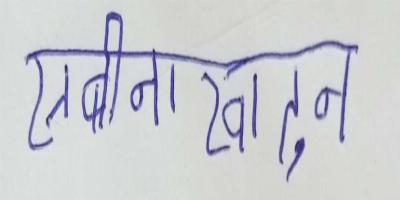 रुबीना खातुन